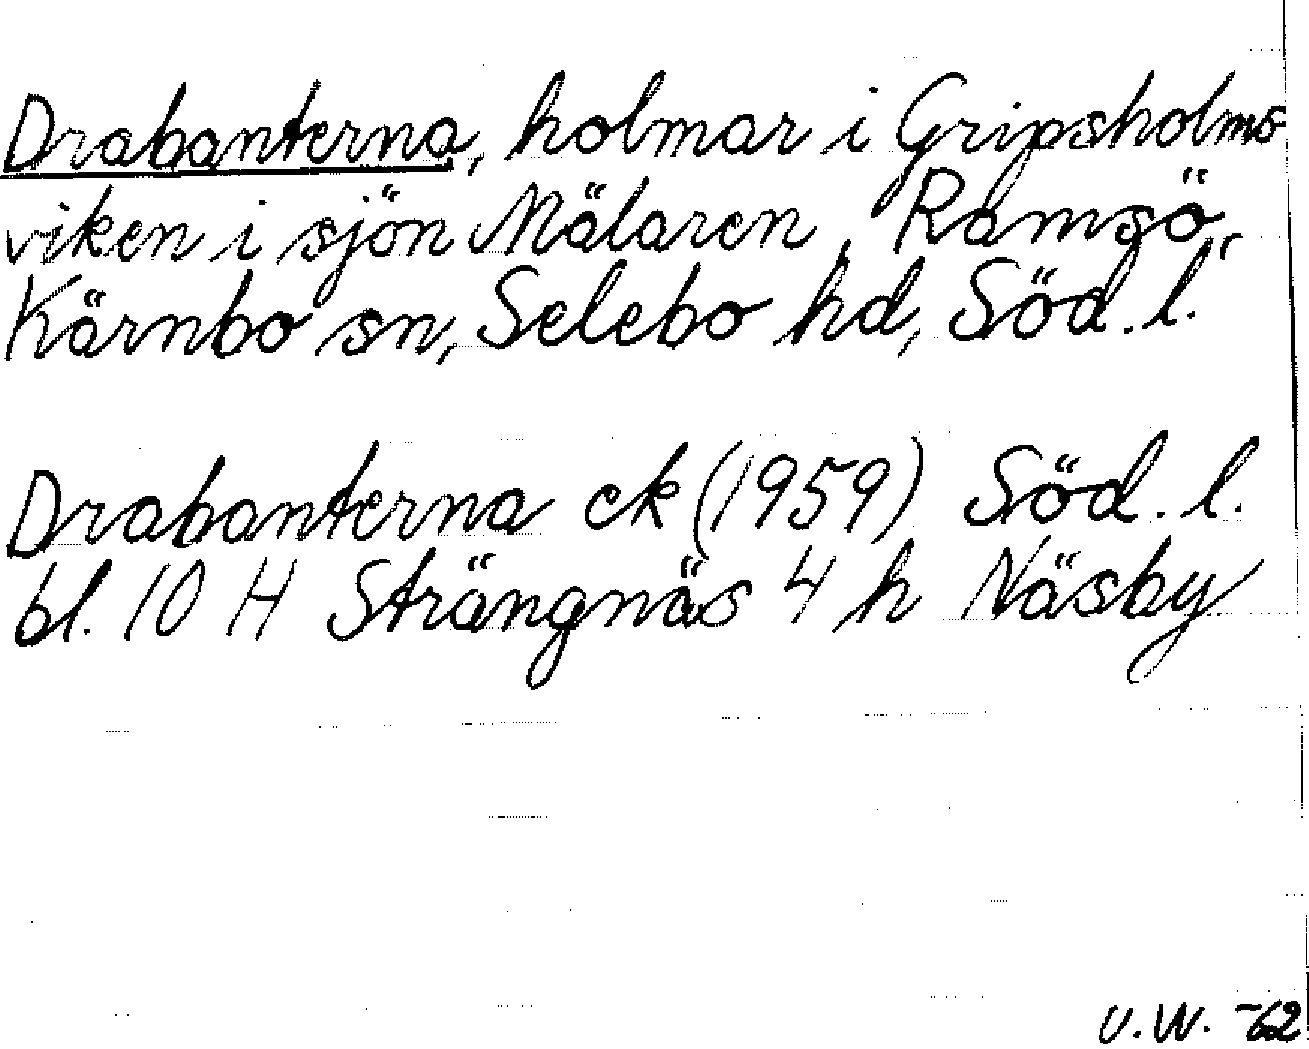 Drabanterna, holmar i Gripsholms
viken i sjön Mälaren, Ramsö,
Kärnbo sn, Selebo hd, Söd. l.
Drabanterna ek (1959) Söd. l.
bl. 10 H Strängnäs 4 h Näsby
U.W. -62